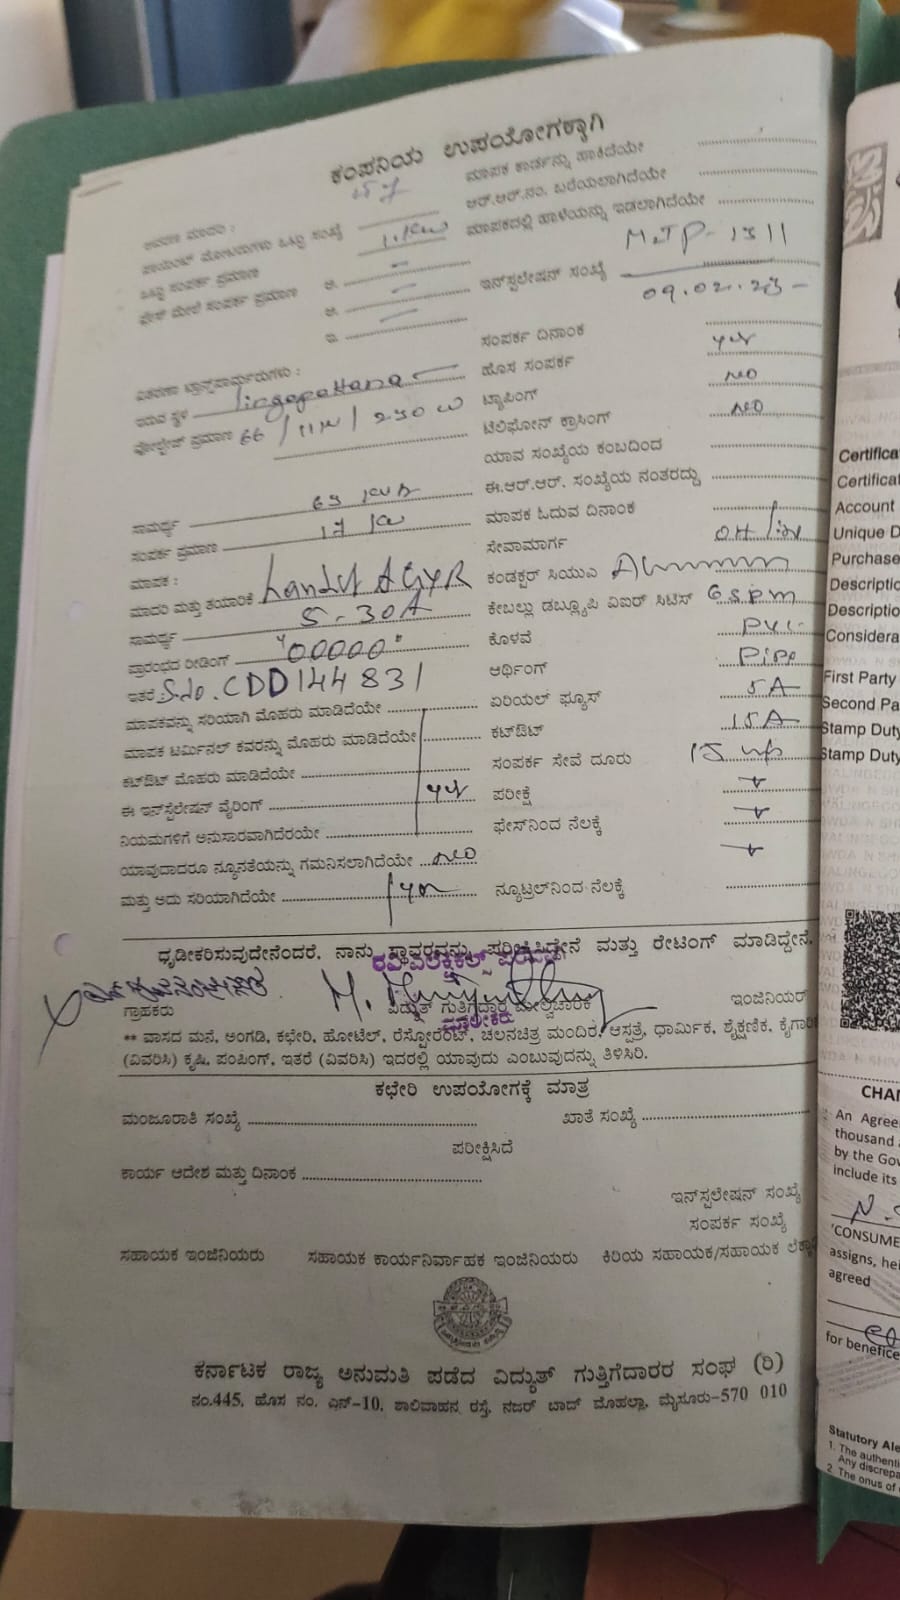 ಕಂಪನಿಯ ಉಪಯೋಗಕ್ಕಾಗಿ
ಮಾಪಕ ಕಾರ್ಡನ್ನು ಹಾಕಿದೆಯೇ
ಆರ್.ಆರ್.ನಂ. ಬರೆಯಲಾಗಿದೆಯೇ
ಮಾಪಕದಲ್ಲಿ ಹಾಳೆಯನ್ನು ಇಡಲಾಗಿದೆಯೇ
ಒಟ್ಟು ಸಂಪರ್ಕ ಪ್ರಮಾಣ
ಫೇಸ್ ಮೇಲೆ ಸಂಪರ್ಕ ಪ್ರಮಾಣ
ಇನ್‌ಸ್ಟಲೇಷನ್ ಸಂಖ್ಯೆ MLTP-1311
09.02.23
ಸಂಪರ್ಕ ದಿನಾಂಕ
ಹೊಸ ಸಂಪರ್ಕ yes
ಟ್ಯಾಪಿಂಗ್ NO
ಟೆಲಿಫೋನ್ ಕ್ರಾಸಿಂಗ್ NO
ಯಾವ ಸಂಖ್ಯೆಯ ಕಂಬದಿಂದ
ಈ.ಆರ್.ಆರ್. ಸಂಖ್ಯೆಯ ನಂತರದ್ದು
ಮಾಪಕ ಓದುವ ದಿನಾಂಕ
ಇರುವ ಸ್ಥಳ lingapattana
ವೋಲ್ಟೇಜ್ ಪ್ರಮಾಣ 66/11
ಸಾಮರ್ಥ್ಯ 63 KVA
ಸಂಪರ್ಕ ಪ್ರಮಾಣ 17
ಮಾಪಕ :
ಮಾದರಿ ಮತ್ತು ತಯಾರಿಕೆ Landis AGYR
ಸಾಮರ್ಥ್ಯ 5-30A
ಪ್ರಾರಂಭದ ರೀಡಿಂಗ್ "00000"
ಇತರೆ : S.No. CDD144831
ಸೇವಾಮಾರ್ಗ OH
ಕಂಡಕ್ಟರ್ ಸಿಯುಎ
ಕೇಬಲ್ಲು ಡಬ್ಲ್ಯೂಪಿ ಏಐರ್ ಸಿಟಿಸ್
ಕೊಳವೆ PVC
ಆರ್ಥಿಂಗ್ Pipe
ಏರಿಯಲ್ ಫ್ಯೂಸ್ 5A
ಕಟ್‌ಔಟ್ 15A
ಸಂಪರ್ಕ ಸೇವೆ ದೂರು
ಪರೀಕ್ಷೆ
ಫೇಸ್‌ನಿಂದ ನೆಲಕ್ಕೆ
ನ್ಯೂಟ್ರಲ್‌ನಿಂದ ನೆಲಕ್ಕೆ
ಮಾಪಕವನ್ನು ಸರಿಯಾಗಿ ಮೊಹರು ಮಾಡಿದೆಯೇ
ಮಾಪಕ ಟರ್ಮಿನಲ್ ಕವರನ್ನು ಮೊಹರು ಮಾಡಿದೆಯೇ
ಕಟ್‌ಔಟ್ ಮೊಹರು ಮಾಡಿದೆಯೇ
ಈ ಇನ್‌ಸ್ಟಲೇಷನ್ ವೈರಿಂಗ್ yes
ನಿಯಮಗಳಿಗೆ ಅನುಸಾರವಾಗಿದೆಯೇ
ಯಾವುದಾದರೂ ನ್ಯೂನತೆಯನ್ನು ಗಮನಿಸಲಾಗಿದೆಯೇ NO
ಮತ್ತು ಅದು ಸರಿಯಾಗಿದೆಯೇ yes
ಧೃಡೀಕರಿಸುವುದೇನೆಂದರೆ, ನಾನು ಸ್ಥಾವರವನ್ನು ಪರೀಕ್ಷಿಸಿದ್ದೇನೆ ಮತ್ತು ರೇಟಿಂಗ್ ಮಾಡಿದ್ದೇನೆ.
ಗ್ರಾಹಕರು ವಿದ್ಯುತ್ ಗುತ್ತಿಗೆದಾರ ಮೇಲ್ವಿಚಾರಕ ಇಂಜಿನಿಯರ್
ಮಾಲೀಕರು
** ವಾಸದ ಮನೆ, ಅಂಗಡಿ, ಕಛೇರಿ, ಹೋಟೆಲ್, ರೆಸ್ಟೋರೆಂಟ್, ಚಲನಚಿತ್ರ ಮಂದಿರ, ಆಸ್ಪತ್ರೆ, ಧಾರ್ಮಿಕ, ಶೈಕ್ಷಣಿಕ,
(ವಿವರಿಸಿ) ಕೃಷಿ, ಪಂಪಿಂಗ್, ಇತರೆ (ವಿವರಿಸಿ) ಇದರಲ್ಲಿ ಯಾವುದು ಎಂಬುವುದನ್ನು ತಿಳಿಸಿರಿ.
ಕಛೇರಿ ಉಪಯೋಗಕ್ಕೆ ಮಾತ್ರ
ಮಂಜೂರಾತಿ ಸಂಖ್ಯೆ ಖಾತೆ ಸಂಖ್ಯೆ
ಪರೀಕ್ಷಿಸಿದೆ
ಕಾರ್ಯ ಆದೇಶ ಮತ್ತು ದಿನಾಂಕ
ಇನ್‌ಸ್ಟಲೇಷನ್ ಸಂಖ್ಯೆ
ಸಂಪರ್ಕ ಸಂಖ್ಯೆ
ಸಹಾಯಕ ಇಂಜಿನಿಯರು ಸಹಾಯಕ ಕಾರ್ಯನಿರ್ವಾಹಕ ಇಂಜಿನಿಯರು ಕಿರಿಯ ಸಹಾಯಕ/ಸಹಾಯಕ
ಕರ್ನಾಟಕ ರಾಜ್ಯ ಅನುಮತಿ ಪಡೆದ ವಿದ್ಯುತ್ ಗುತ್ತಿಗೆದಾರರ ಸಂಘ (ರಿ)
ನಂ.445, ಹೊಸ ನಂ. ಎನ್-10, ಶಾಲಿವಾಹನ ರಸ್ತೆ, ನಜರ್ ಬಾದ್ ಮೊಹಲ್ಲಾ, ಮೈಸೂರು-570 010
Certifica
Certificat
Account
Unique D
Purchase
Descriptio
Descriptio
Considera
First Party
Second Pa
Stamp Duty
Stamp Duty
CHAN
An Agree
thousand
by the Gov
include its
'CONSUME
assigns, hei
agreed
for benefice
Statutory Ale
1. The authenti
Any discrepa
2. The onus of